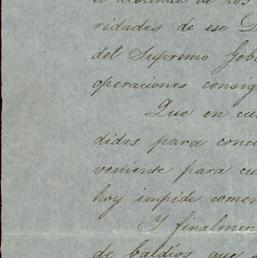 el alcance de los
ridades de ese D
del Supremo Gob
operaciones consig
Que en cu
didos para conce
veniente para cu
hoy impide comen
Y finalmen
de baldíos que